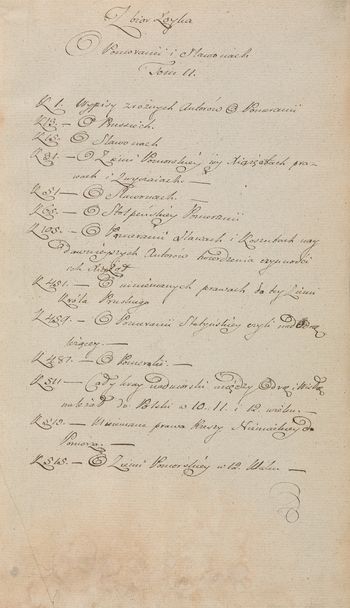 Zbior Łoyka
O Pomoranii i Sławonach
Tom II.
K 1. Wypisy zrożnych Autorow O Pomeranii
K 13. — O Prussiech.
K 15. O Sławonach
K 31. — O Ziemi Pomorskiey iey Xiążętach pra-
wach i Zwyczaiach. —
K 51 — O Sławonach. —
K 65. — O Stolpeńskiey Pomeranii
K 105. — O Pomeranii Sławach i Kaszubach nay
dawnieyszych Autorów twierdzenia
ich Xiążąt
K 451. — O mniemanych prawach do tey Ziemi
Króla Pruskiego
K 459. — O Pomeranii Sczecinskiey czyli nad Odrą
leżącey. —
K 487. — O Pomorski. —
K 511 — Cały kray nadmorski między Odrą i Wisłą
należał do Polski w 10. 11. i 12. wieku. —
K 513. — Mniemane prawa Rzeszy Niemieckiey do
Pomorza. —
K 515. — O Ziemi Pomorskiey w 12. Wieku. —